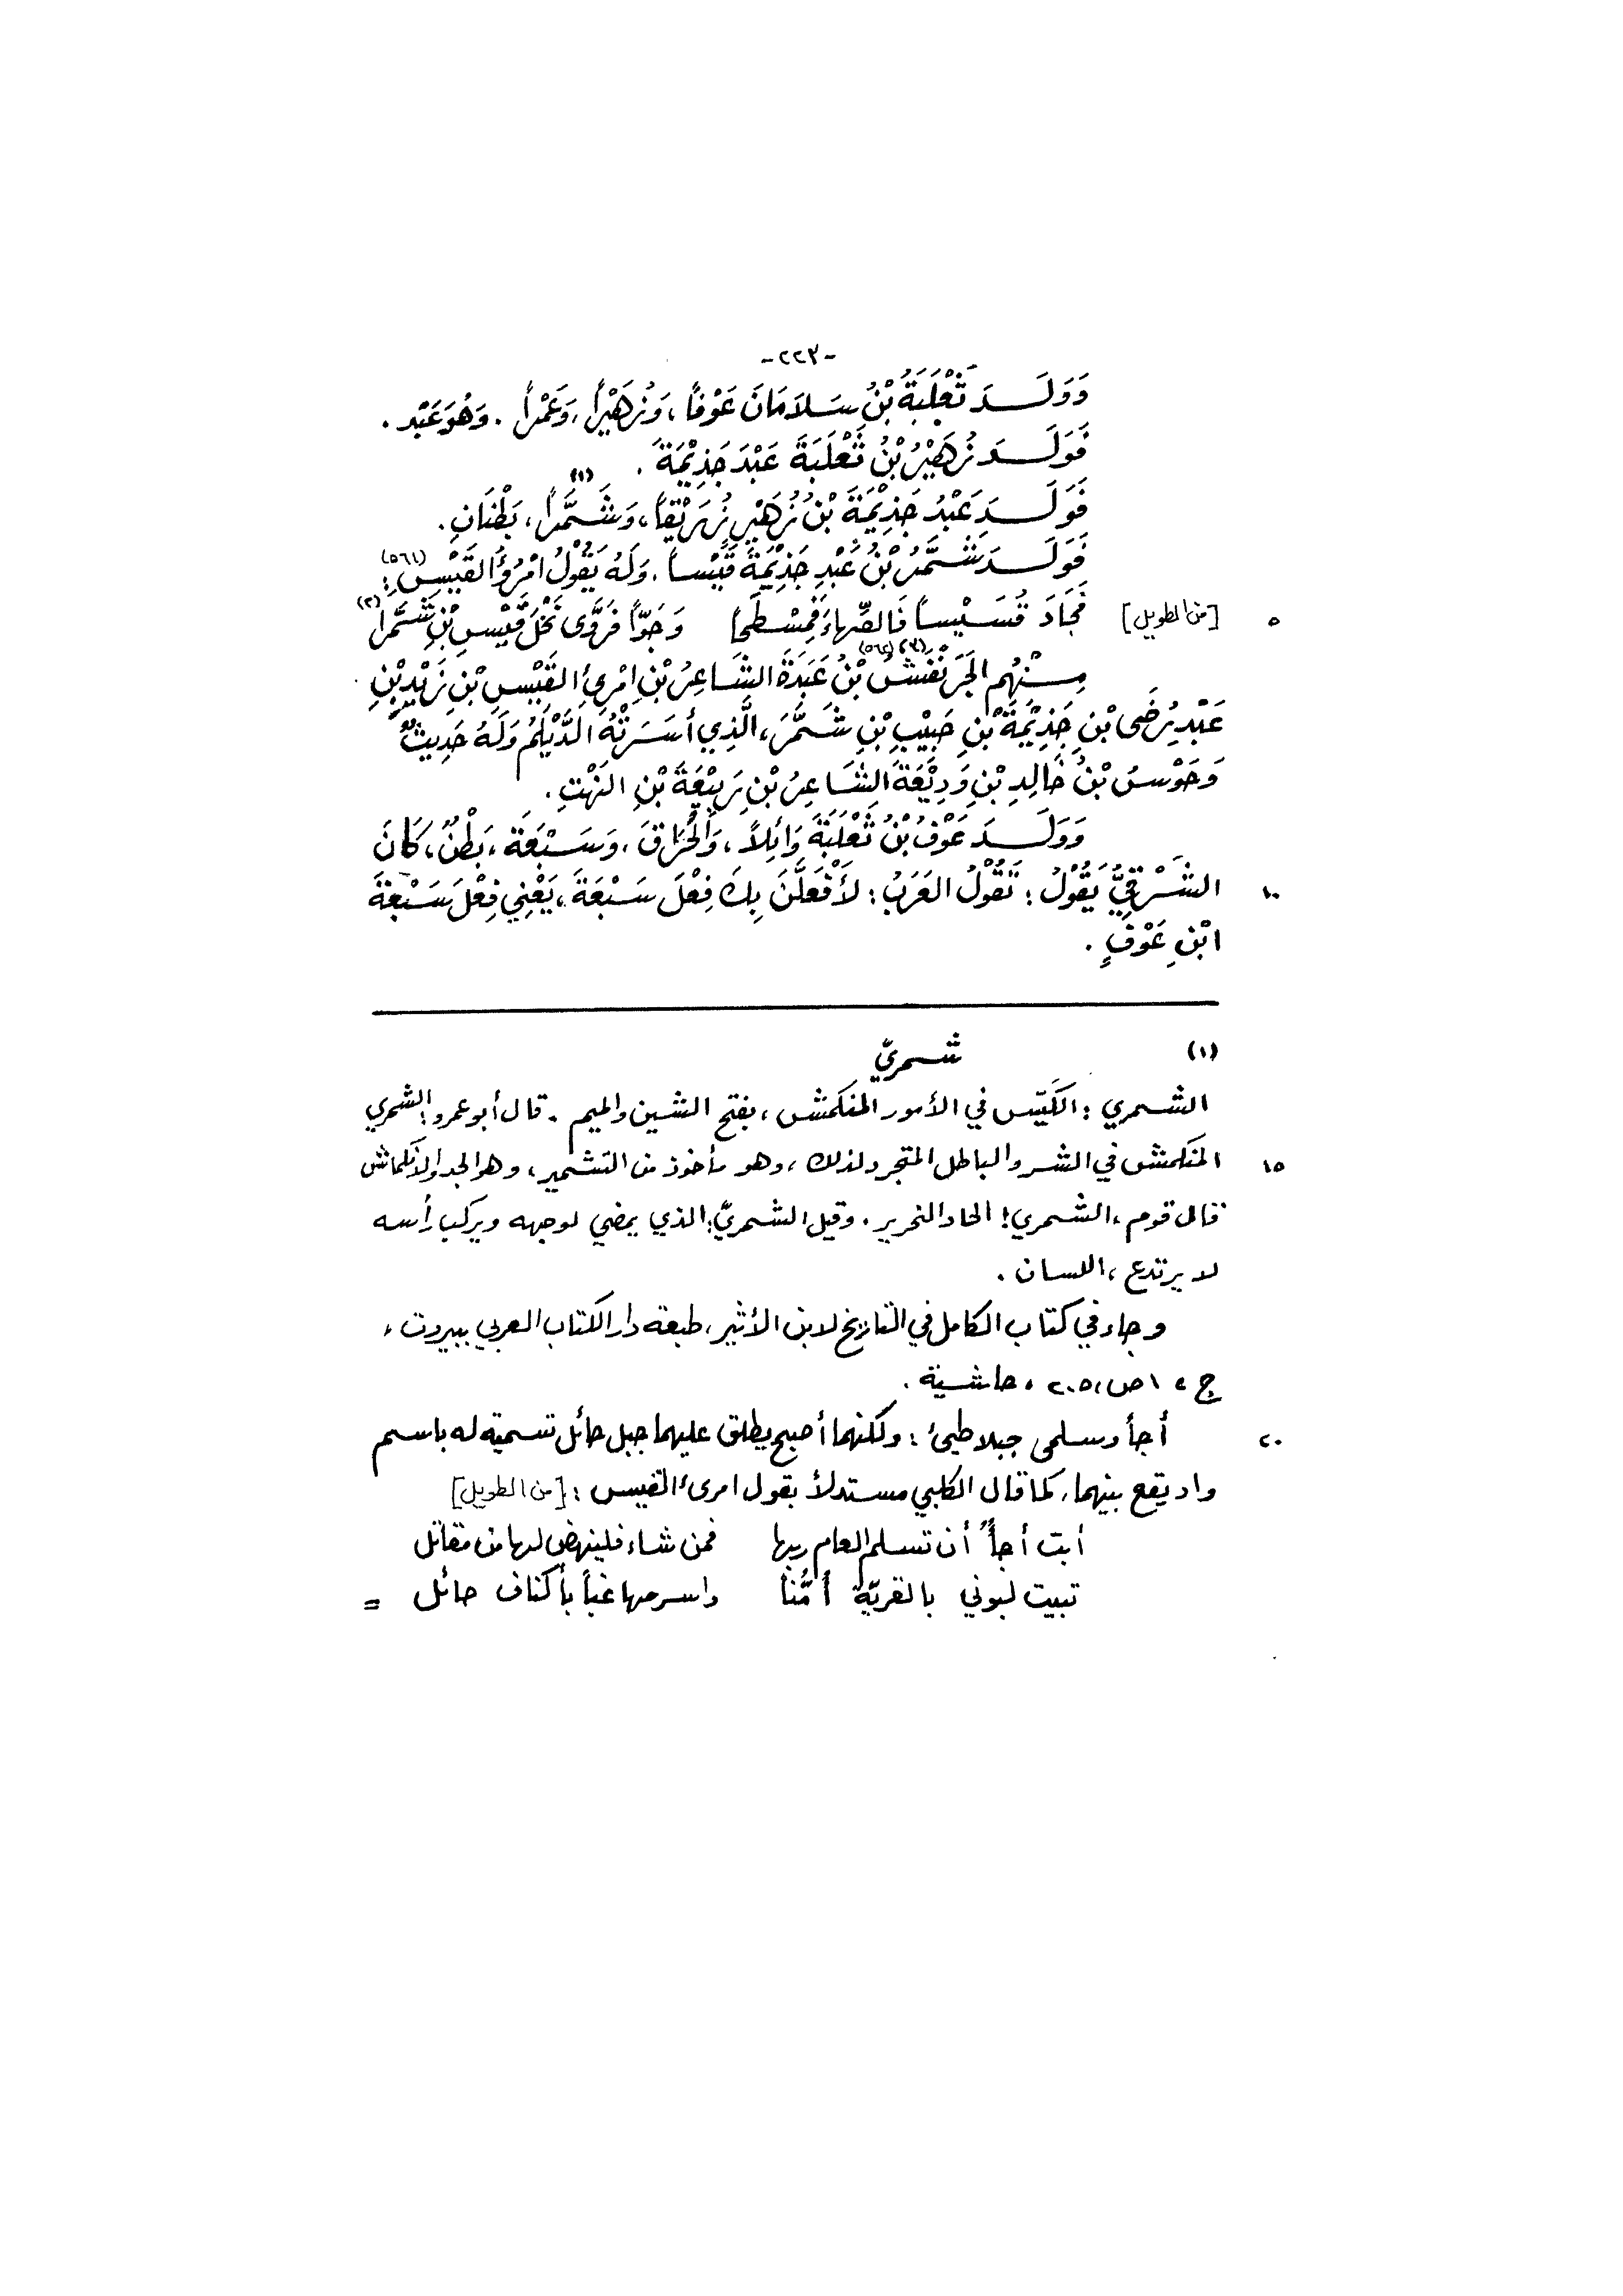 -٢٢٣-
وَوَلَــدَ ثَعْلَبَةُ بْنُ سَلَامَانَ عَوْفاً، وَزُهَيْراً، وَعَمْراً. وَهُوَ عَبْد.
فَوَلَــدَ زُهَيْرُ بْنُ ثَعْلَبَةَ عَبْدَ جَذِيْمَةَ.
فَوَلَــدَ عَبْدُ جَذِيْمَةَ بْنُ زُهَيْرٍ زُهَرِيْقاً، وَشَمَّراً(١)، بَطْنَانِ.
فَوَلَــدَ شَمَّرُ بْنُ عَبْدِ جَذِيْمَةَ قَيْساً، وَلَهُ يَقُوْلُ امْرُؤُ القَيْسِ:(٥٦١)
٥ [من الطويل] فَجَادَ قُسَيْساً فَالصِّهاءَ فَمِسْطَحاً وَجَوّاً فَرَوَّى نَخْلَ قَيْسِ بْنِ شَمَّرا(٢)
مِــنْهُم الجَرَنْفَشُ(٣)(٥٦٢) بْنُ عَبَدَةَ الشَّاعِرُ بْنِ امْرِئِ القَيْسِ بْنِ زَيْدِ بْنِ
عَبْدِ رُضَى بْنِ جَذِيْمَةَ بْنِ حَبِيْبِ بْنِ شَمَّرَ، الَّذِي أَسَرَتْهُ الدَّيْلَمُ وَلَهُ حَدِيثٌ
وَحَوْسُ بْنُ خَالِدِ بْنِ وَدِيْعَةَ الشَّاعِرُ بْنِ رَبِيْعَةَ بْنِ النَهْتِ.
وَوَلَــدَ عَوْفُ بْنُ ثَعْلَبَةَ وَائِلاً، وَالحُرَاقَ، وَسَبْعَةَ، بَطْنٌ، كَانَ
١٠ الشَّرْقِيُّ يَقُوْلُ: تَقُوْلُ العَرَبُ: لَأَفْعَلَنَّ بِكَ فِعْلَ سَبْعَةَ، يَعْنِي فِعْلَ سَبْعَةَ
ابْنِ عَوْفٍ.
(١) شــمريّ
الشــمري: الكَيّس في الأمور المنكمش، بفتح الشين والميم. قال أبو عمرو: الشمري
١٥ المنكمش في الشر والباطل المتجرد لذلك، وهو مأخوذ من التشمير، وهو الجد والانكماش
قال قوم، الشــمري: الحاد النحرير. وقيل الشــمريّ: الذي يمضي لوجهه ويركب رأسه
لا يرتدع، اللسان.
وجاء في كتاب الكامل في التاريخ لابن الأثير، طبعة دار الكتاب العربي ببيروت،
ج، ١ ص، ٢٠٥، حاشية.
٢٠ أجأ وسلمى جبلا طيئ: ولكنهما أصبح يطلق عليهما جبل حائل تسمية له باسم
واد يقع بينهما، كما قال الكلبي مستدلاً بقول امرئ القيس: [من الطويل]
أبت أجأٌ أن تسلم العام ربها فمن شاء فلينهض لها من مقاتل
تبيت لبوني بالقريّة أُمَّنا واسرحها غباً بأكناف حائل =